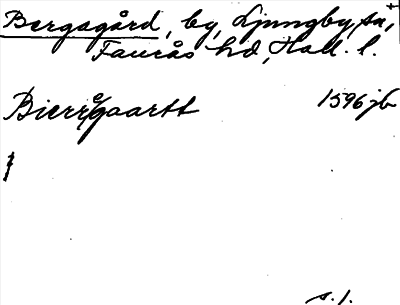 Bergagård, by, Ljungby sn,
Faurås hd, Hall. l.
Bierregaartt 1596 jb
s. 1.